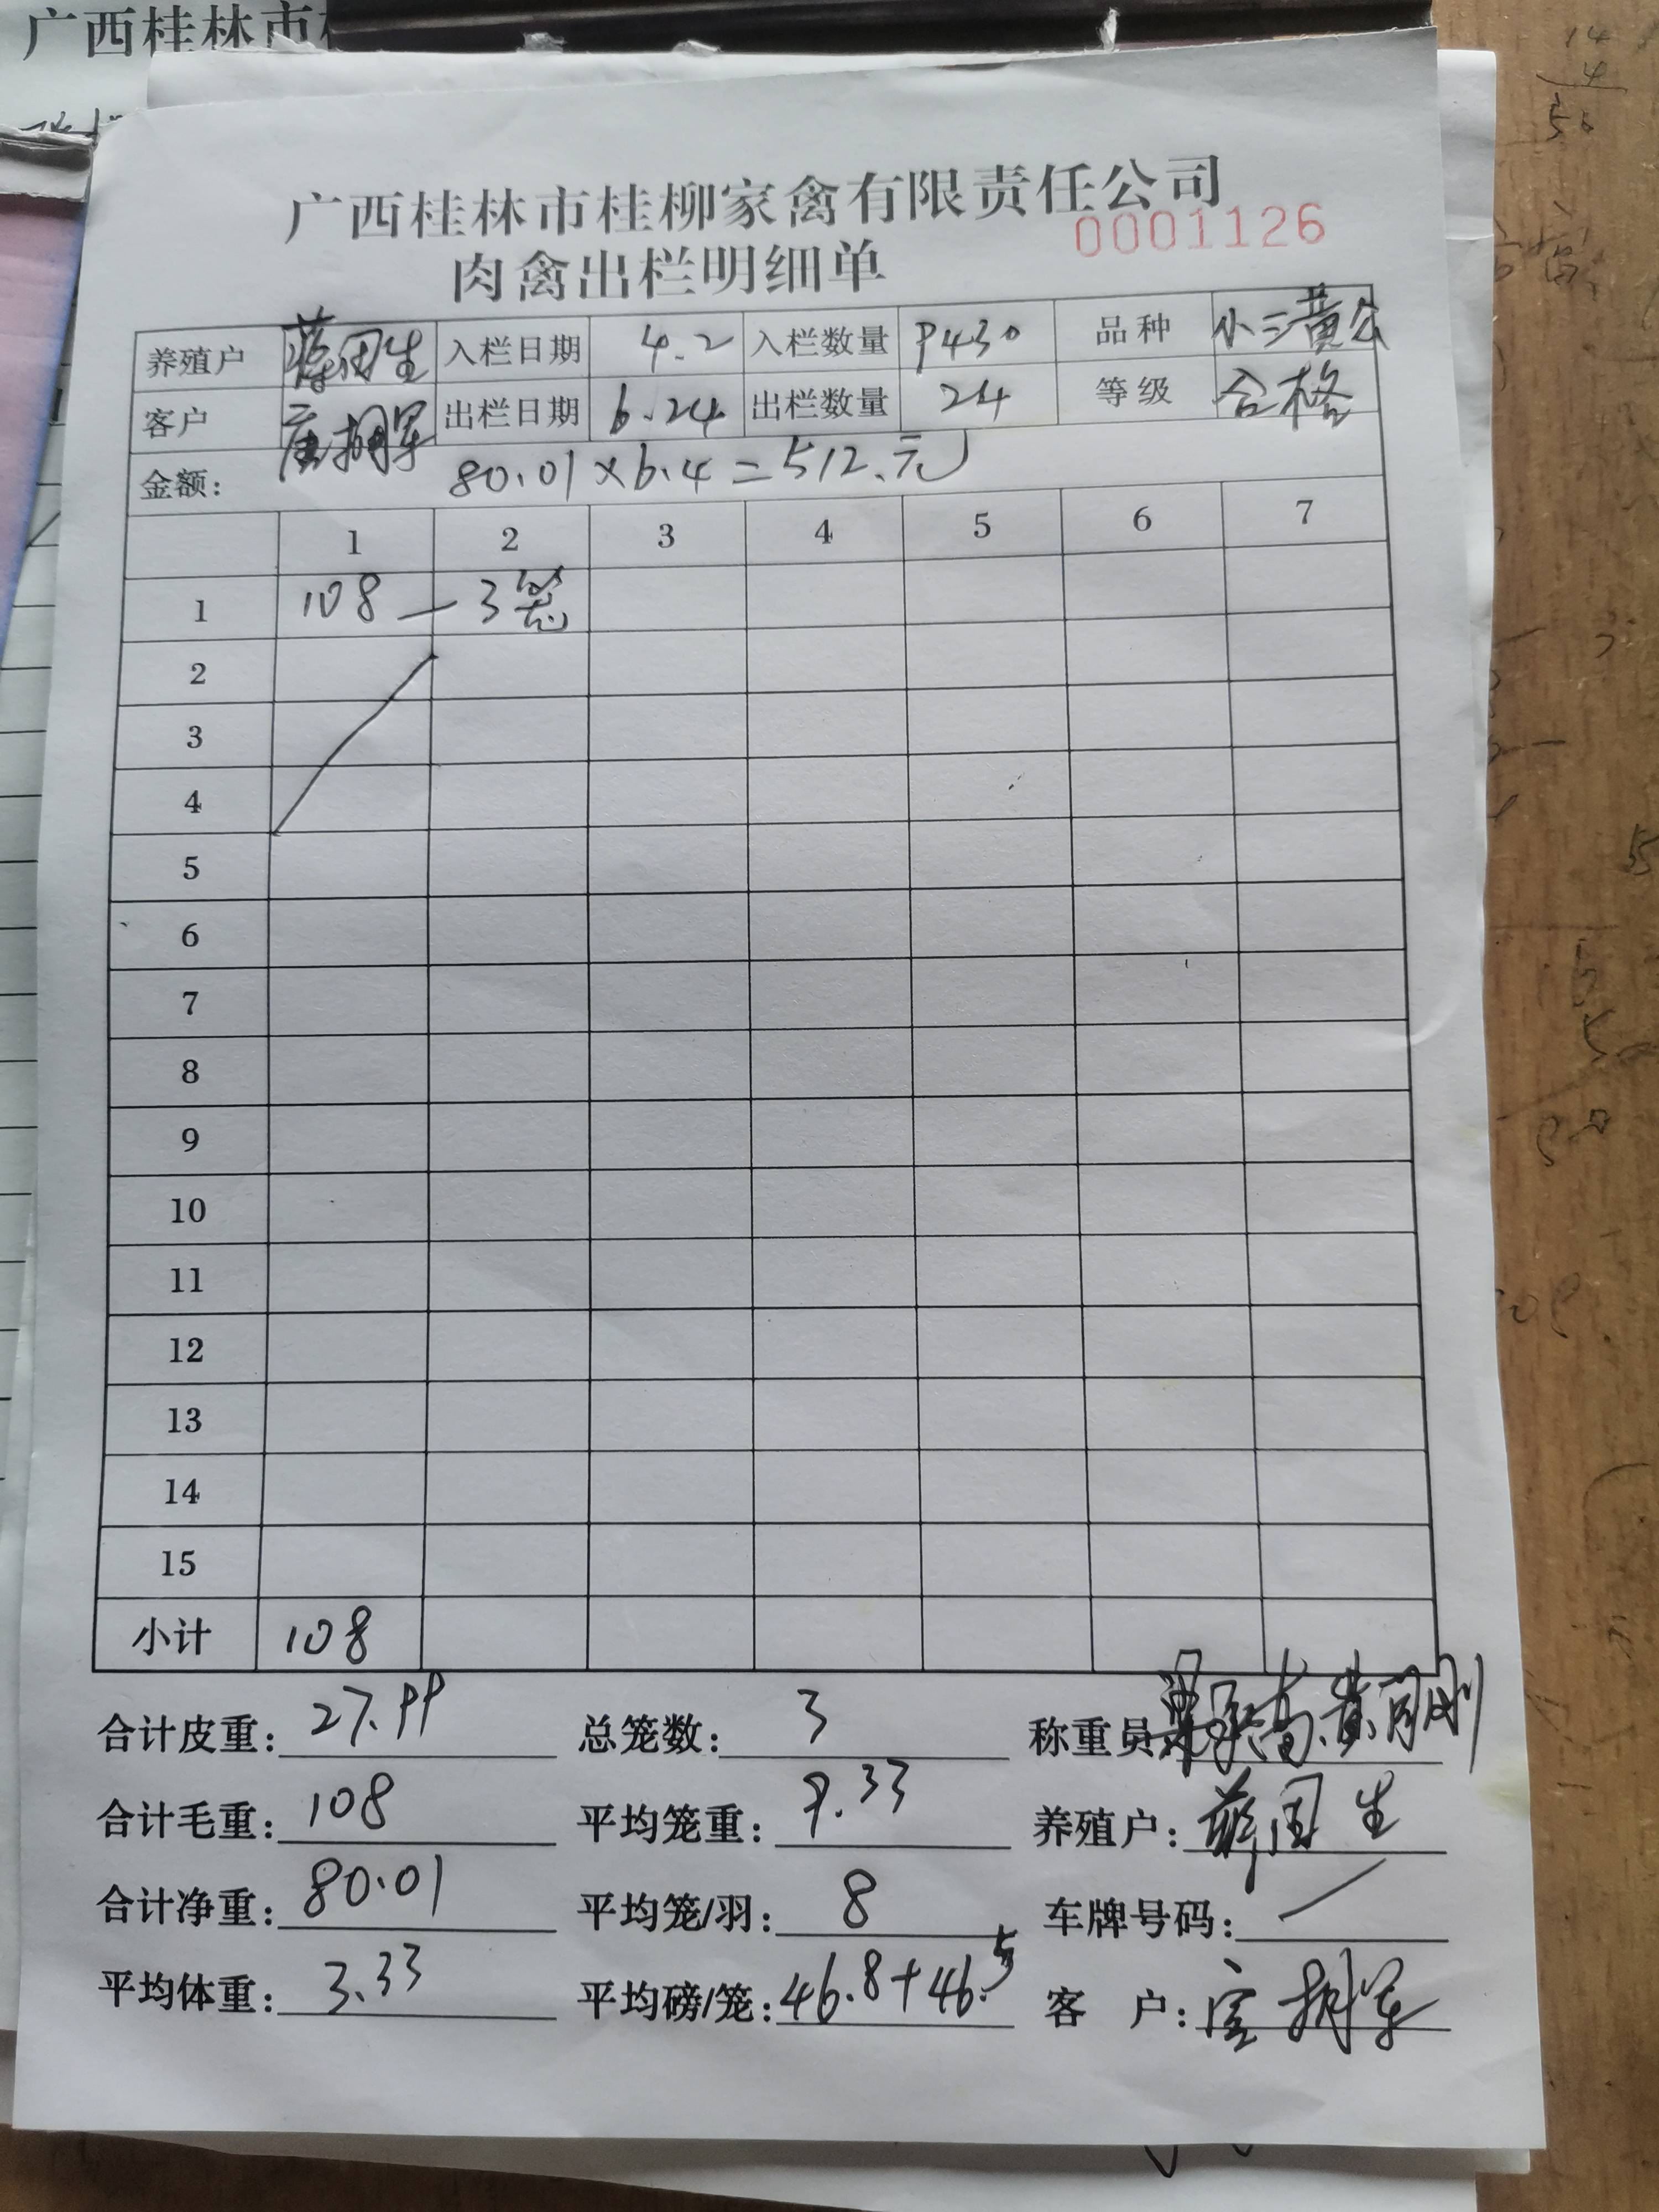 广西桂林市
广西桂林市桂柳家禽有限责任公司
0001126
肉禽出栏明细单
养殖户 蒋闰生 入栏日期 4.2 入栏数量 9430 品种 小三黄公
客户 唐拥军 出栏日期 6.24 出栏数量 24 等级 合格
金额: 80.01×6.4=512.元
1 2 3 4 5 6 7
1 108 — 3笼
2
3
4
5
6
7
8
9
10
11
12
13
14
15
小计 108
合计皮重: 27.99 总笼数: 3 称重员
合计毛重: 108 平均笼重: 9.33 养殖户: 蒋闰生
合计净重: 80.01 平均笼/羽: 8 车牌号码: /
平均体重: 3.33 平均磅/笼: 46.8+46.5 客 户: 唐拥军